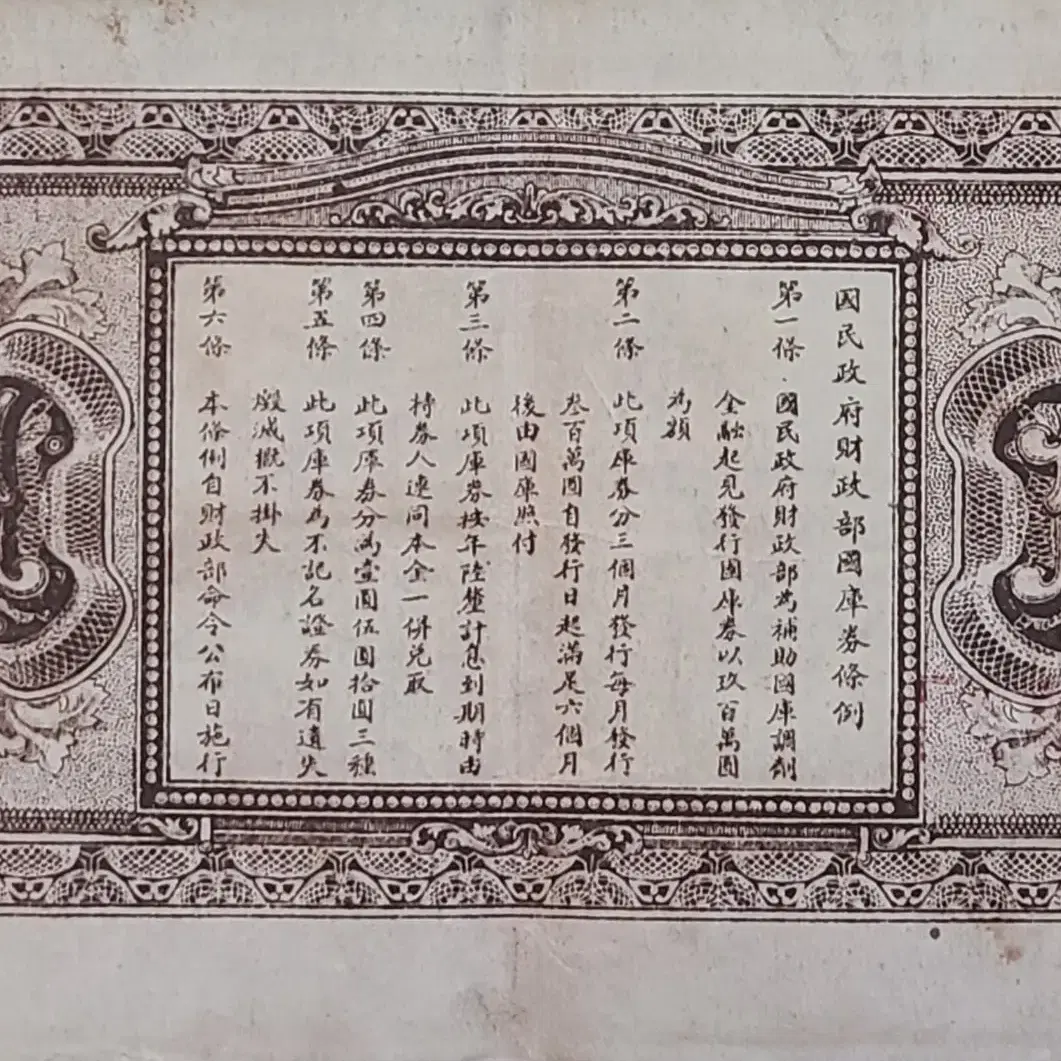 國民政府財政部國庫券條例
第一條 國民政府財政部為補助國庫調劑
金融起見發行國庫券以玖百萬圓
為額
第二條 此項庫券分三個月發行每月發行
叁百萬圓自發行日起滿足六個月
後由國庫照付
第三條 此項庫券按年陸釐計息到期時由
持券人連同本金一併兌取
第四條 此項庫券分為壹圓伍圓拾圓三種
第五條 此項庫券為不記名證券如有遺失
毀滅概不掛失
第六條 本條例自財政部命令公布日施行